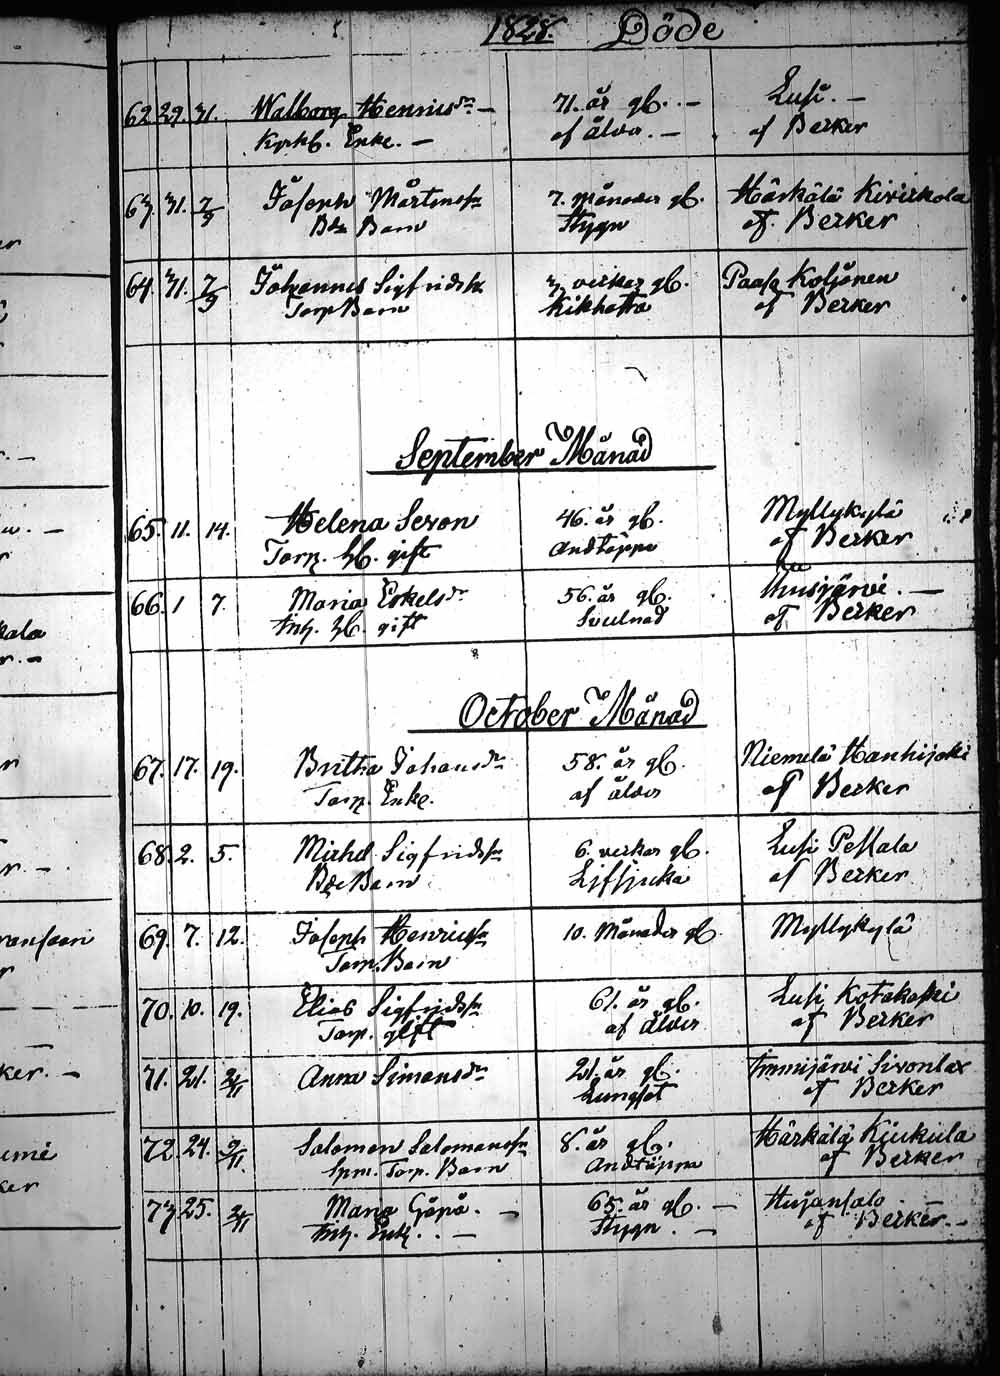 1828. Döde
62. 29. 31. Walborg Henricsdr — 71. år gl. — Lusi. —
Kyrkh. Enke. — af ålder. — af Berker
63. 31. 7/9 Joseph Mårtenss: 7. Månader gl. Härkälä Kivirkola
Bde Barn Stygn af. Berker
64. 31. 7/9 Johannes Sigfridss: 3 veckor gl. Paaso Koljonen
Torp Barn Kikhosta af Berker
September Månad
65. 11. 14. Helena Sexon 46. år gl. Myllykylä
Torp. h. gift Andtäppa af Berker
66. 1 7. Maria Eskelsdr 56. år gl. Anusjärvi. —
Inh. h. gift Svullnad af Berker
October Månad
67. 17. 19. Britha Johansdr 58. år gl. Niemelä Hanhijoki
Torp. Enke. af ålder af Berker
68. 2. 5. Michel Sigfridss: 6. veckor gl. Lusi Pessala
Bde Barn Lifsjuka af Berker
69. 7. 12. Joseph Henricss: 10. Månader gl. Myllykylä
Torp. Barn
70. 10. 19. Elias Sigfridss: 61. år gl. Lusi Kotakoski
Torp. gift af ålder af Berker
71. 21. 2/11 Anna Simonsdr 21. år gl. Immijärvi Sivonlax
Lungsot af Berker
72. 24. 2/11. Salomon Salomonss: 8. år gl. Härkälä Kiukula
Spm. Torp. Barn Andtäppa af Berker
73 25. 2/11 Maria Göpä. — 65. år gl. — Hujansalo. —
Inh. Enk. . — Stygn. — af Berker. —